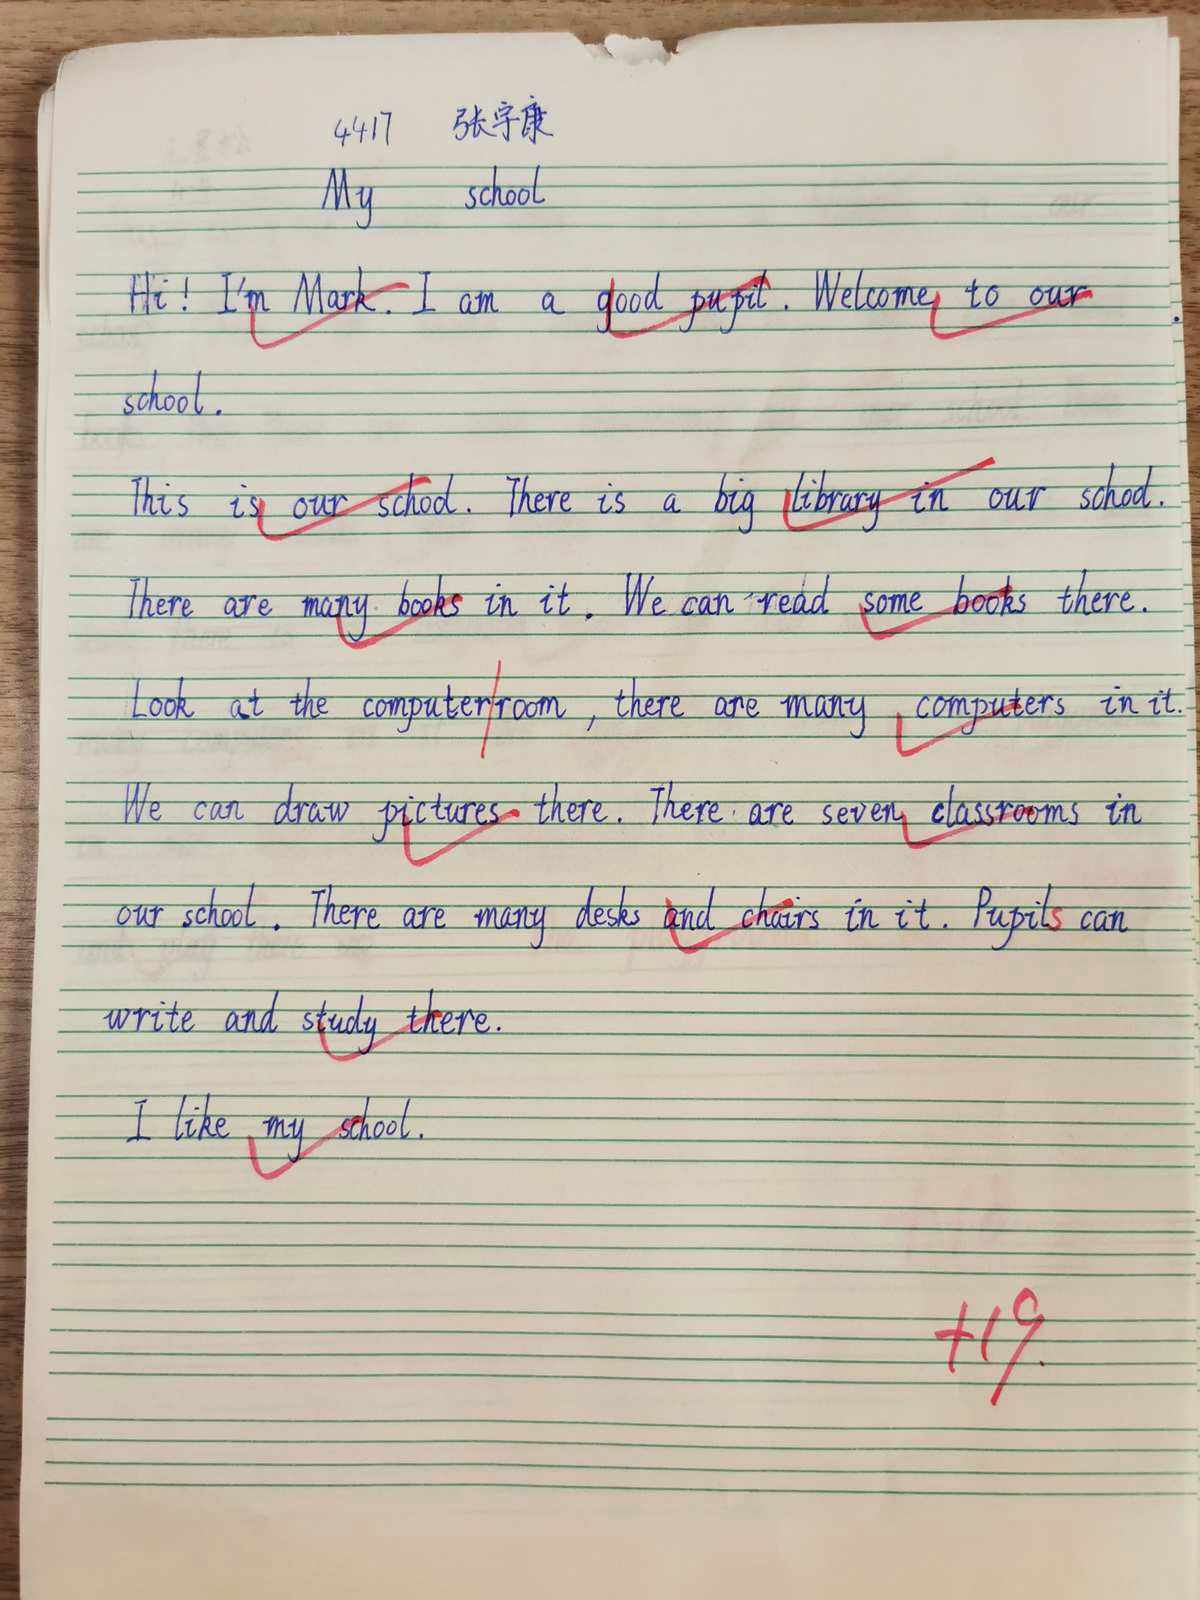 4417 张宇康
My school
Hi! I'm Mark. I am a good pupil. Welcome to our
school.
This is our school. There is a big library in our school.
There are many books in it. We can read some books there.
Look at the computer/room, there are many computers in it.
We can draw pictures there. There are seven classrooms in
our school. There are many desks and chairs in it. Pupils can
write and study there.
I like my school.
+19.